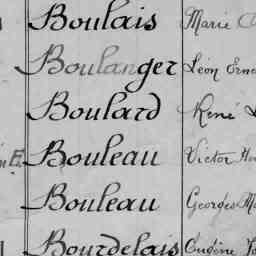 Boulais Marie
Boulanger Léon Erne
Boulard René
Bouleau Victor
Bouleau Georges
Bourdelais Eugène